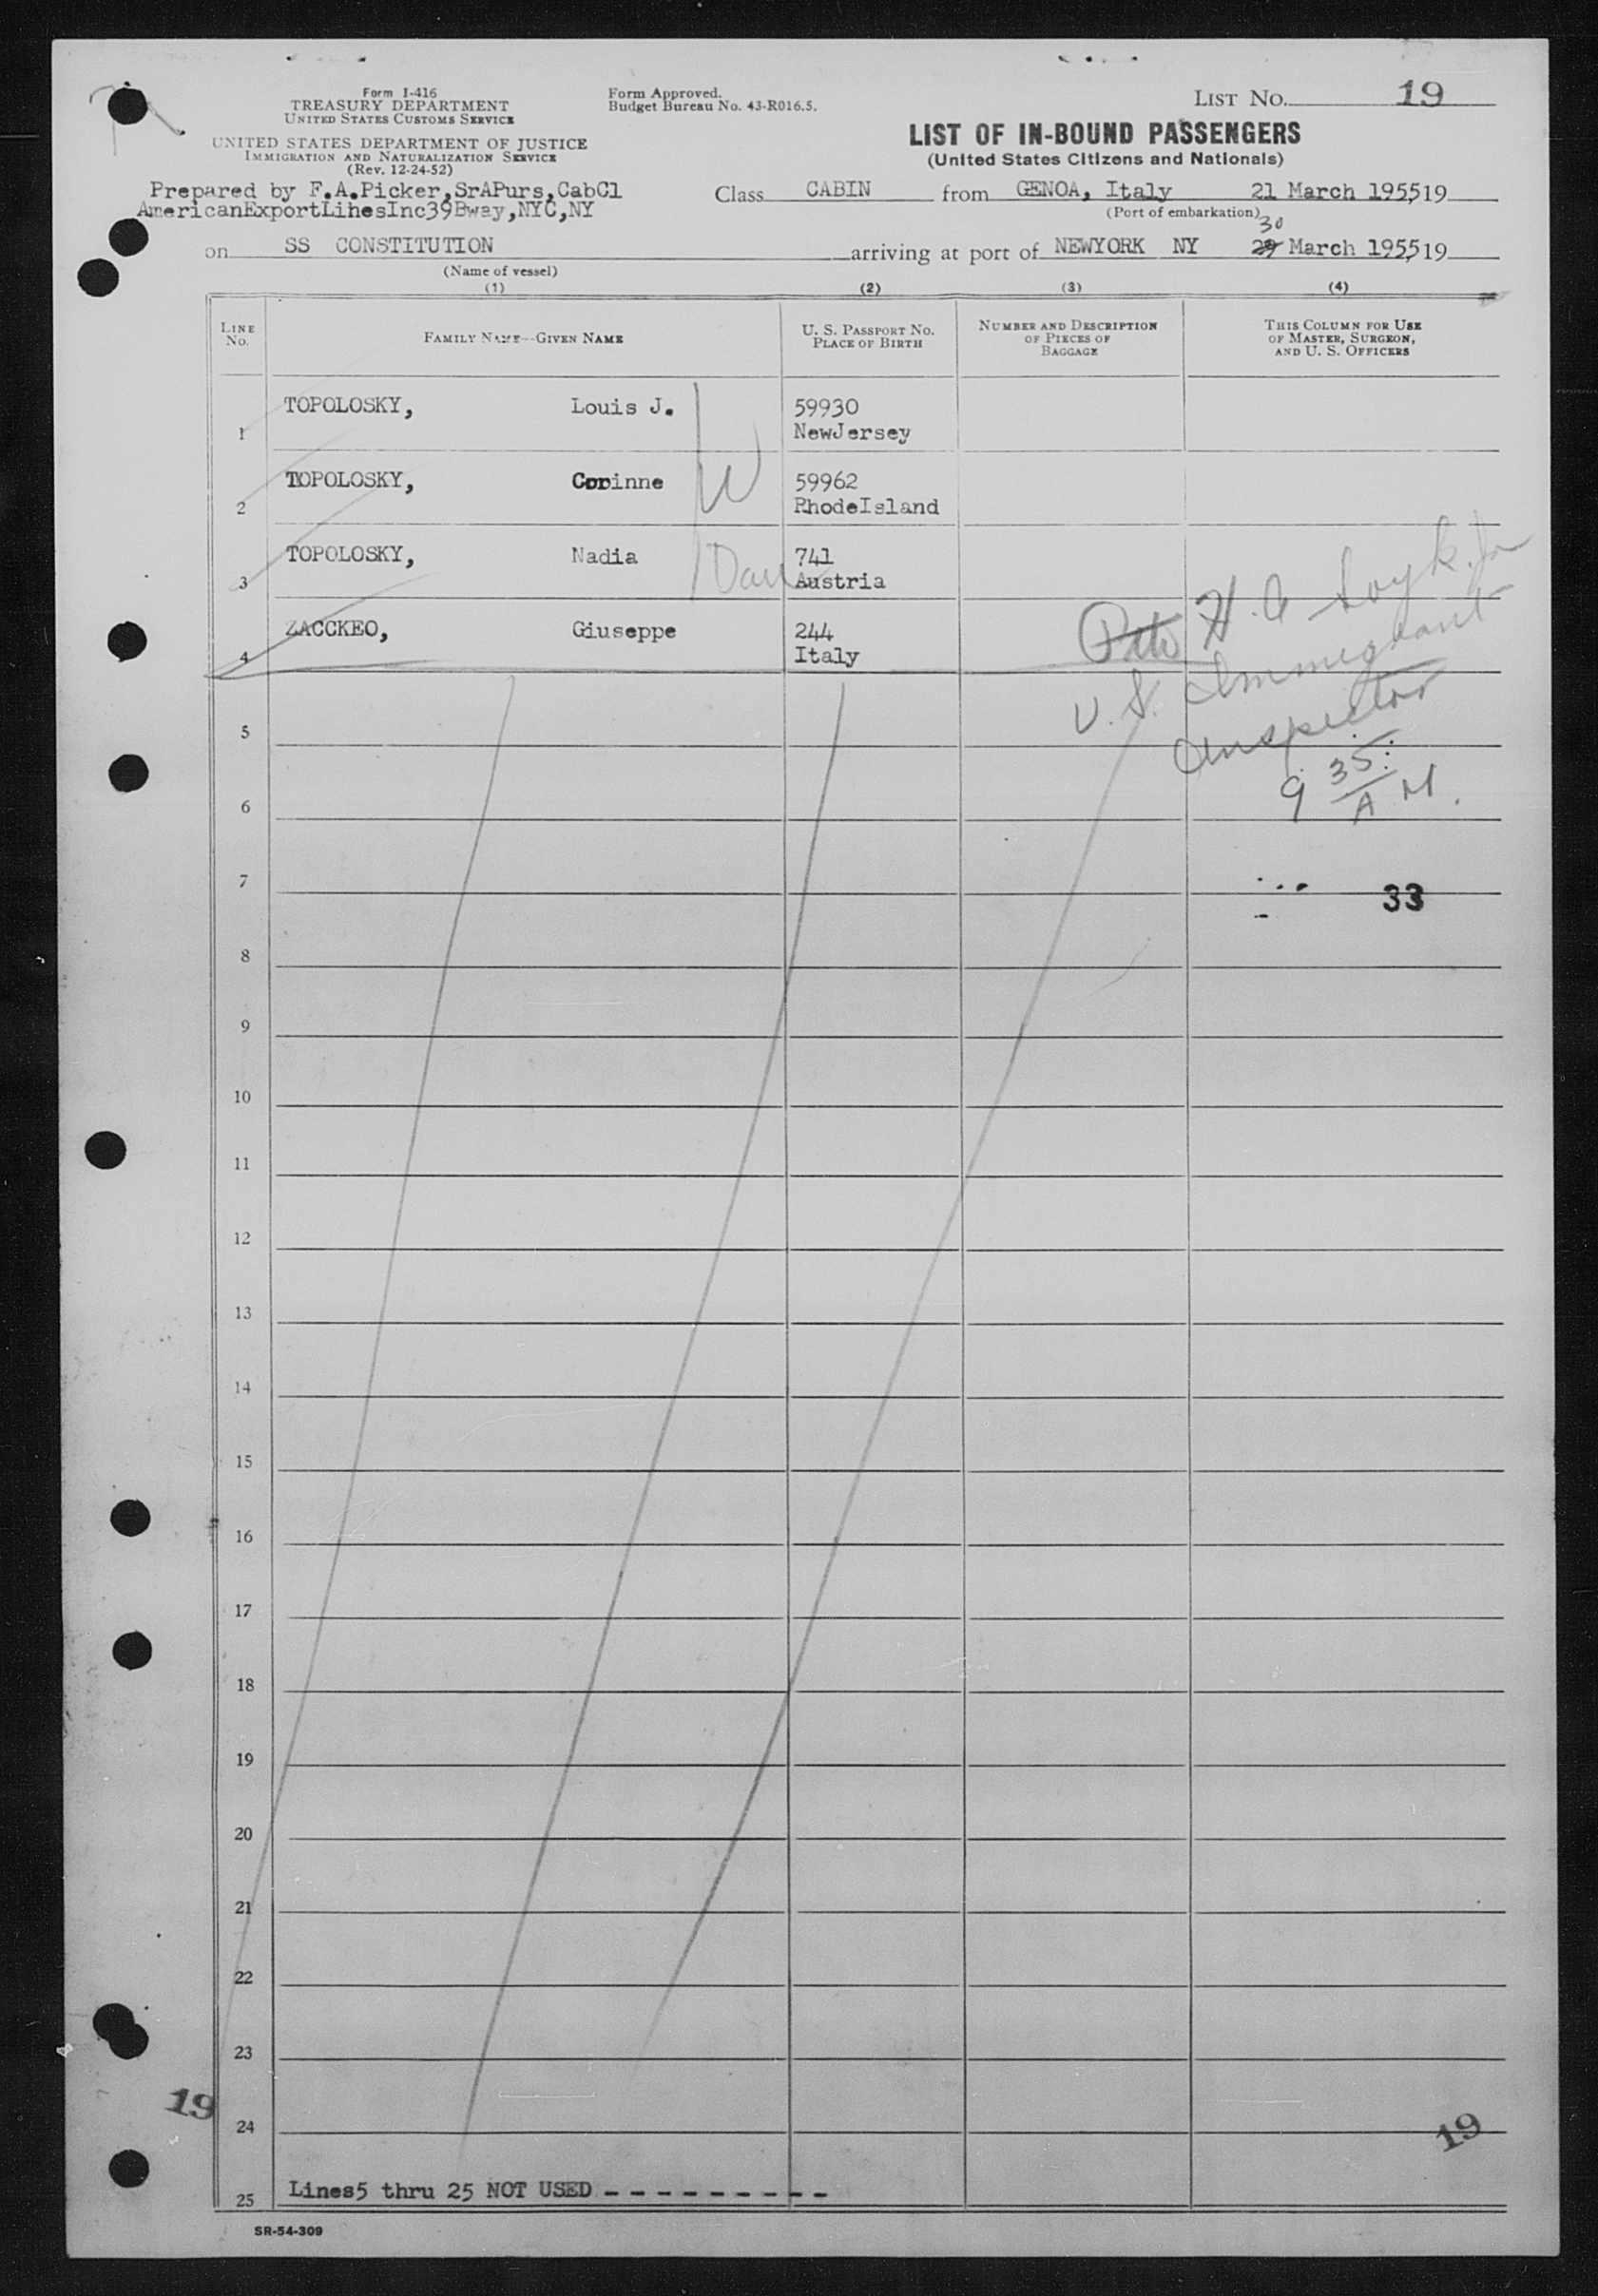 Form I-416
TREASURY DEPARTMENT
UNITED STATES CUSTOMS SERVICE
UNITED STATES DEPARTMENT OF JUSTICE
IMMIGRATION AND NATURALIZATION SERVICE
(Rev. 12-24-52)
Form Approved.
Budget Bureau No. 43-R016.5.
LIST NO. 19
LIST OF IN-BOUND PASSENGERS
(United States Citizens and Nationals)
Prepared by F.A.Picker,SrAPurs,CabCl
AmericanExportLinesInc39Bway,NYC,NY
Class CABIN from GENOA, Italy 21 March 1955,19
(Port of embarkation)
30
on SS CONSTITUTION arriving at port of NEWYORK NY 29 March 1955,19
(Name of vessel)
(1) (2) (3) (4)
LINE NO.
FAMILY NAME--GIVEN NAME
U. S. PASSPORT NO.
PLACE OF BIRTH
NUMBER AND DESCRIPTION
OF PIECES OF
BAGGAGE
THIS COLUMN FOR USE
OF MASTER, SURGEON,
AND U. S. OFFICERS
TOPOLOSKY, Louis J. 59930
1 NewJersey
TOPOLOSKY, Corinne W 59962
2 RhodeIsland
TOPOLOSKY, Nadia Dau 741
3 Austria
ZACCKEO, Giuseppe 244
4 Italy
H. A.
U. S. Immigrant
Inspector
9 35 AM.
5
6
7
33
8
9
10
11
12
13
14
15
16
17
18
19
20
21
22
23
19
24
19
25 Lines5 thru 25 NOT USED - - - - - - - - -
SR-54-309